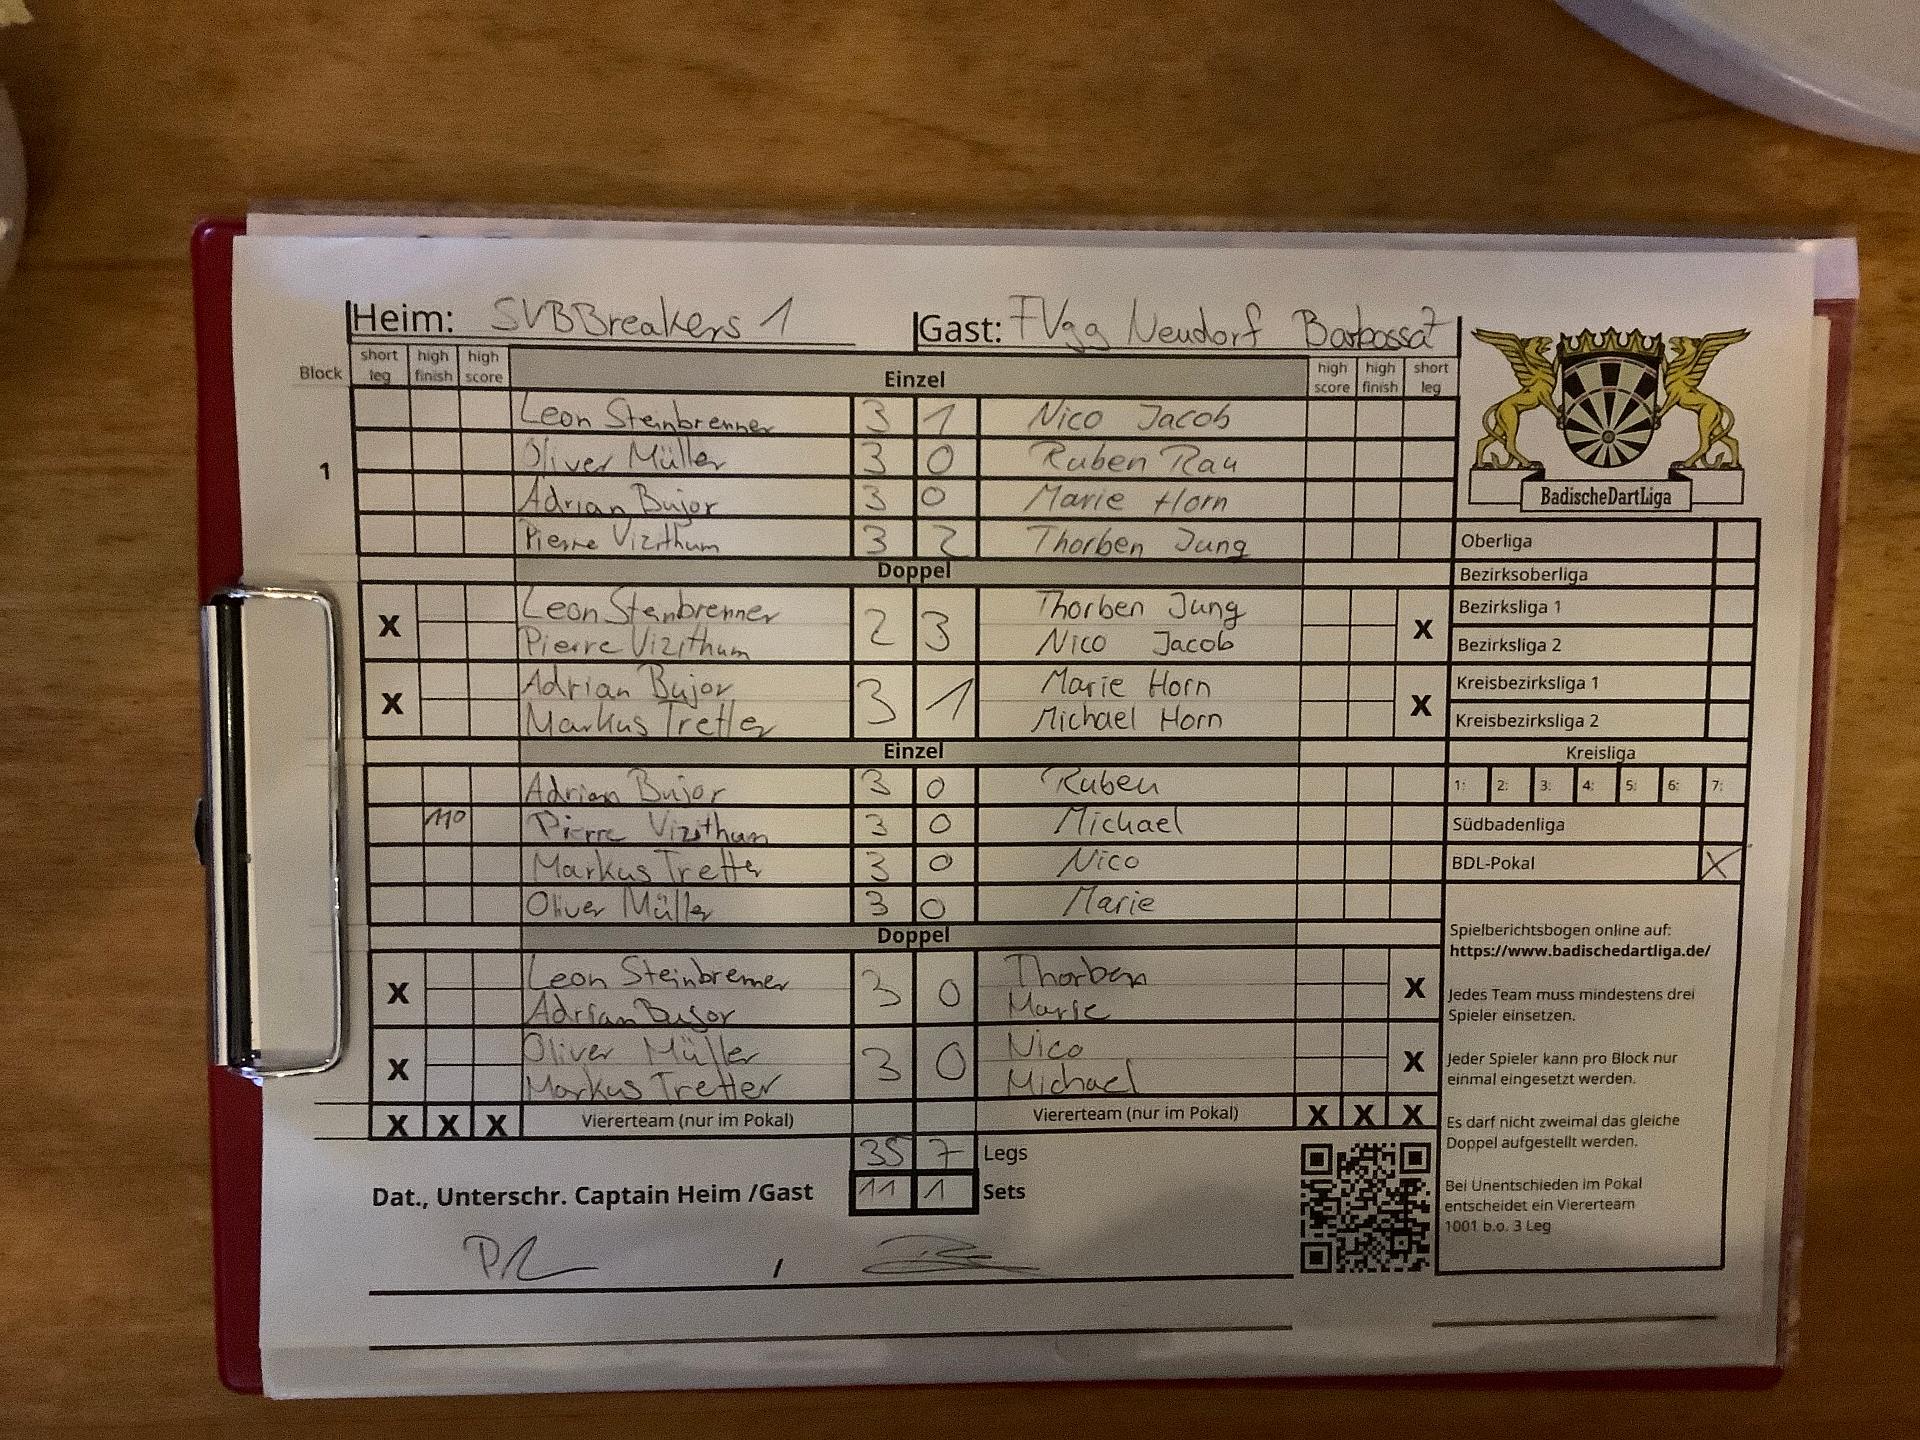 Heim: SVBBreakers 1 Gast: FVgg Neudorf Barbossa
Block short leg high finish high score Einzel high score high finish short leg
Leon Steinbrenner 3 1 Nico Jacob
Oliver Müller 3 0 Ruben Rau
1
Adrian Bujor 3 0 Marie Horn
BadischeDartLiga
Pierre Vizithum 3 2 Thorben Jung
Doppel
Leon Steinbrenner Thorben Jung
X 2 3 X
Pierre Vizithum Nico Jacob
Adrian Bujor Marie Horn
X 3 1 X
Markus Tretter Michael Horn
Einzel
Adrian Bujor 3 0 Ruben
110 Pierre Vizithum 3 0 Michael
Markus Tretter 3 0 Nico
Oliver Müller 3 0 Marie
Doppel
Leon Steinbrenner Thorben
X 3 0 X
Adrian Bujor Marie
Oliver Müller Nico
X 3 0 X
Markus Tretter Michael
X X X Viererteam (nur im Pokal) Viererteam (nur im Pokal) X X X
35 7 Legs
Dat., Unterschr. Captain Heim /Gast 11 1 Sets
/
Oberliga
Bezirksoberliga
Bezirksliga 1
Bezirksliga 2
Kreisbezirksliga 1
Kreisbezirksliga 2
Kreisliga
1: 2: 3: 4: 5: 6: 7:
Südbadenliga
BDL-Pokal X
Spielberichtsbogen online auf:
https://www.badischedartliga.de/
Jedes Team muss mindestens drei
Spieler einsetzen.
Jeder Spieler kann pro Block nur
einmal eingesetzt werden.
Es darf nicht zweimal das gleiche
Doppel aufgestellt werden.
Bei Unentschieden im Pokal
entscheidet ein Viererteam
1001 b.o. 3 Leg